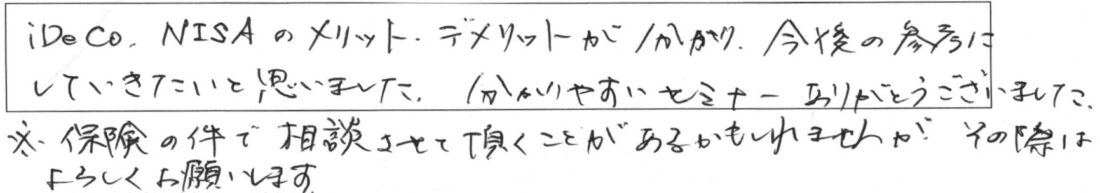 iDeCo. NISAのメリット・デメリットが分かり、今後の参考に
していきたいと思いました。分かりやすいセミナーありがとうございました。
※保険の件で相談させて頂くことがあるかもしれませんが、その際は
よろしくお願いします